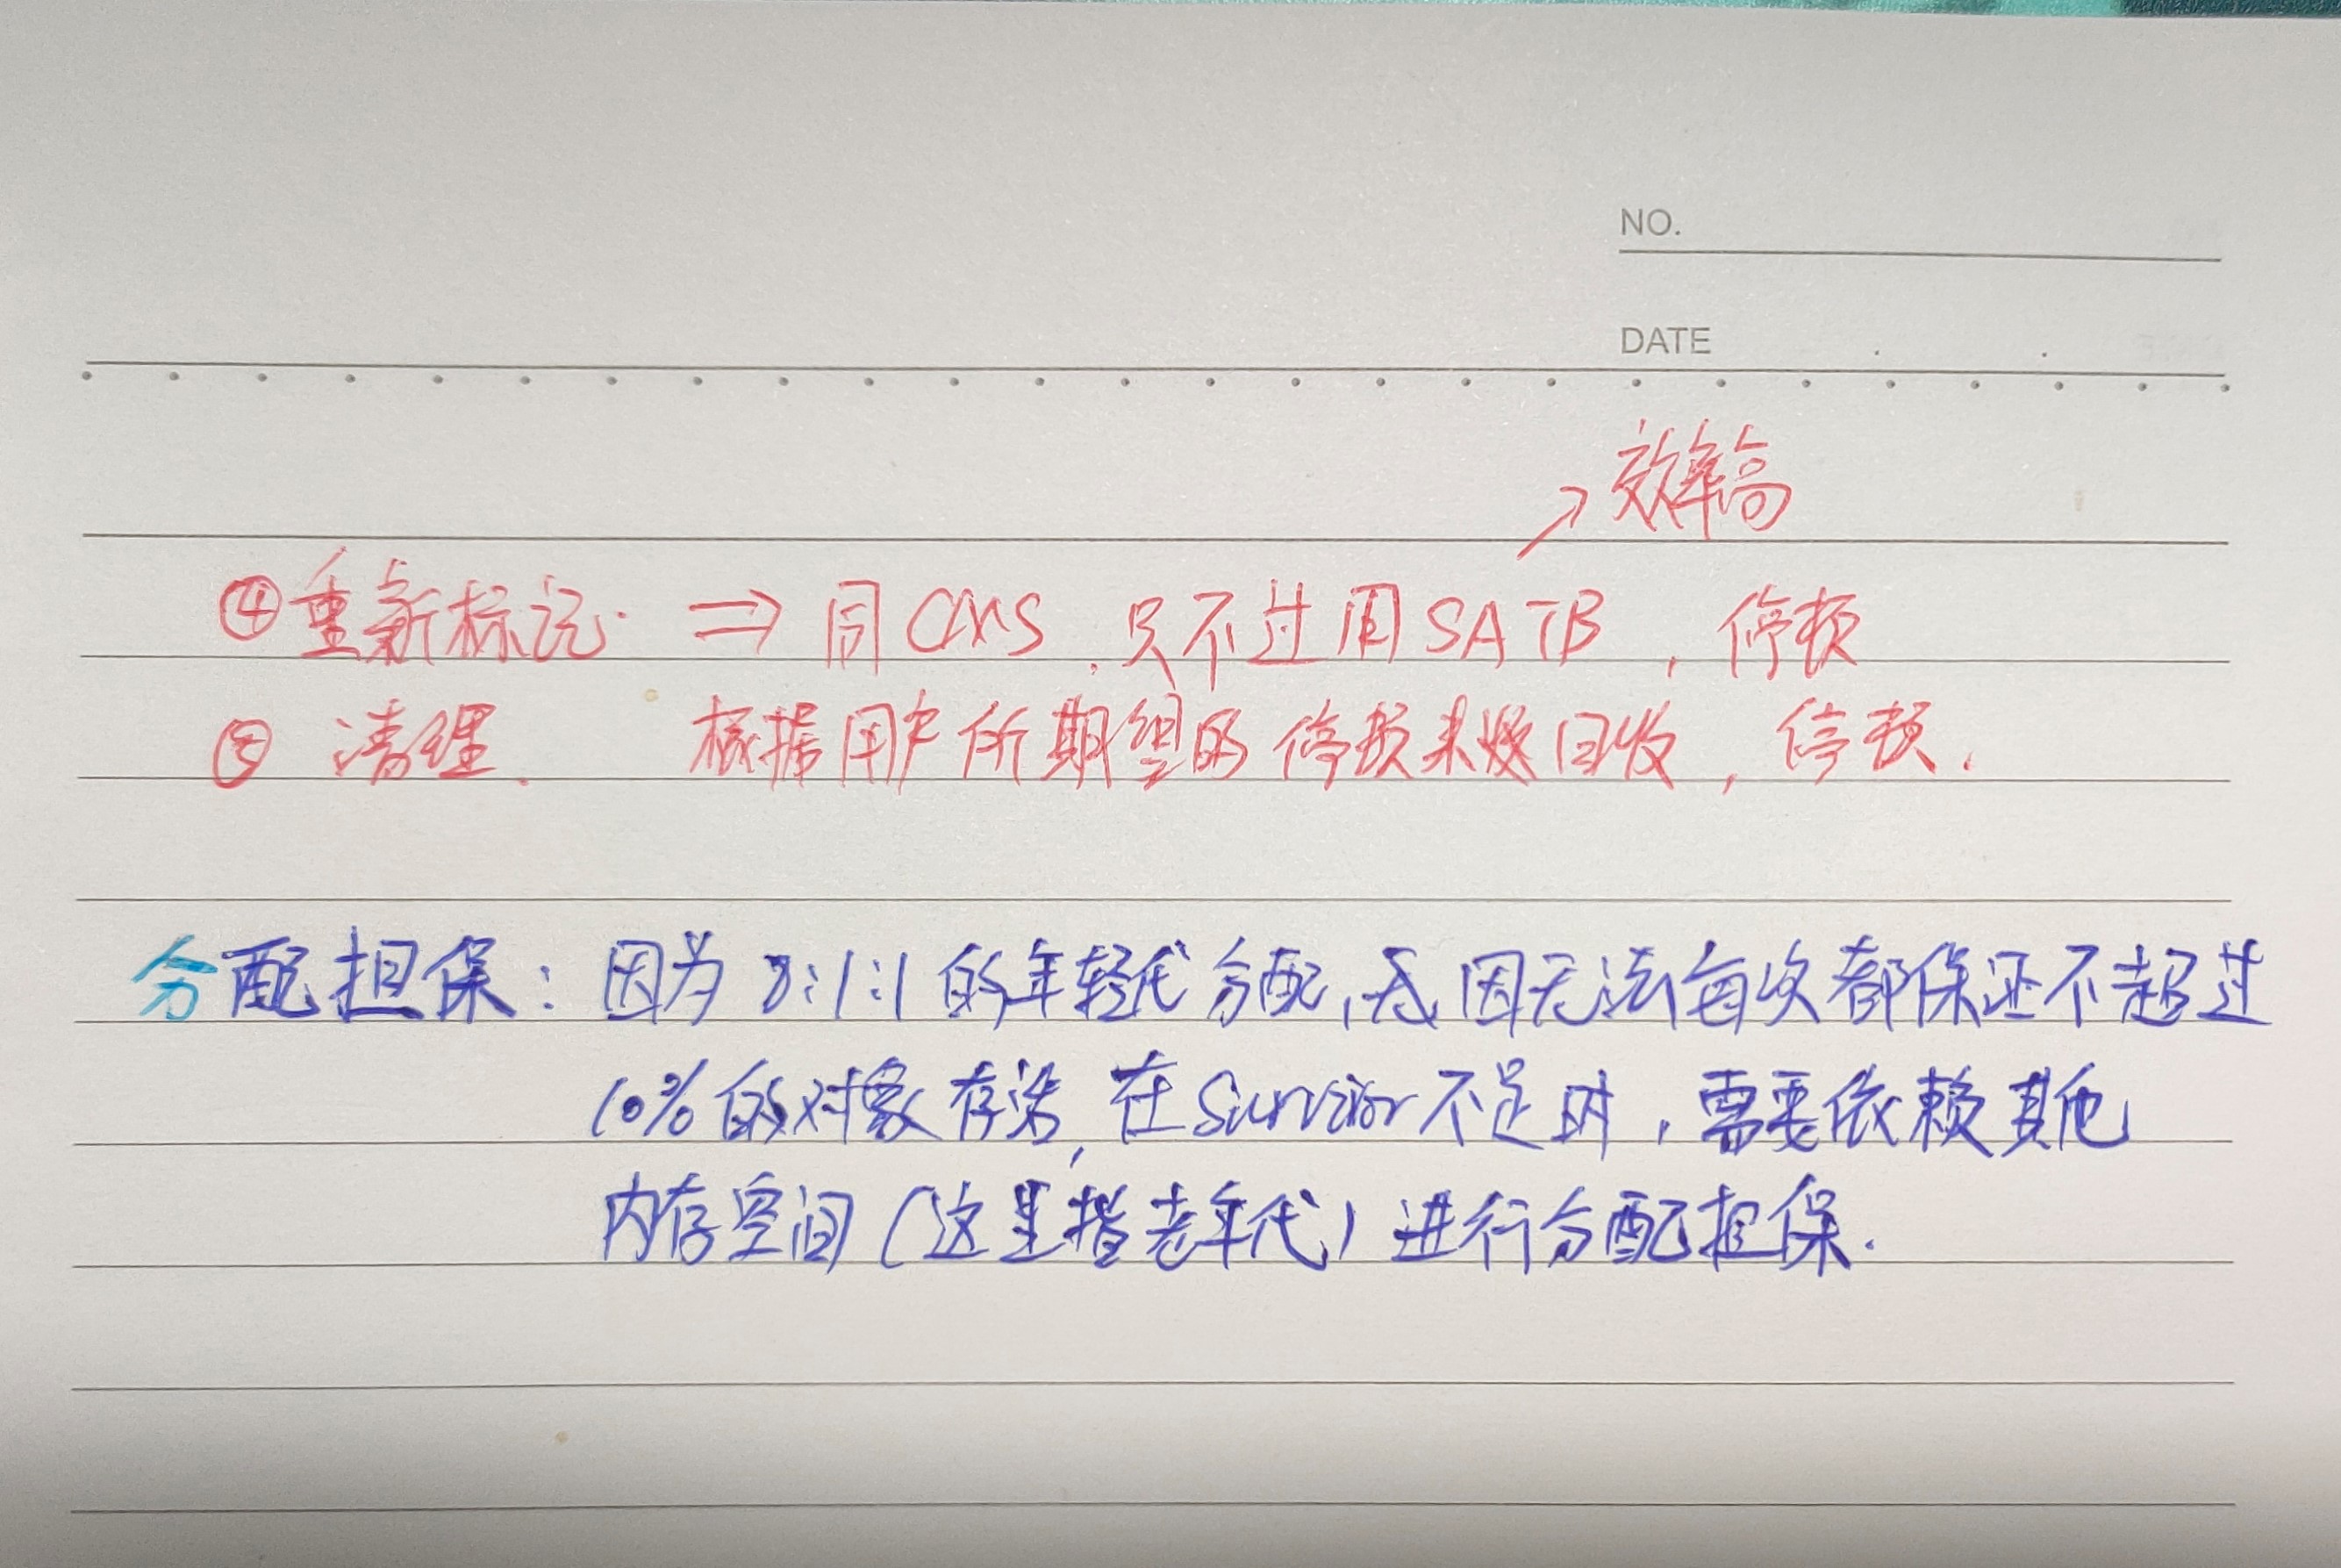 NO.
DATE
效率高
④重新标记. ⇒ 同CMS, 只不过用SATB, 停顿
⑤ 清理. 根据用户所期望的停顿来做回收, 停顿.
分配担保: 因为8:1:1的年轻代分配, 因无法每次都保证不超过
10%的对象存活, 在Survior不足时, 需要依赖其他
内存空间(这里指老年代)进行分配担保.